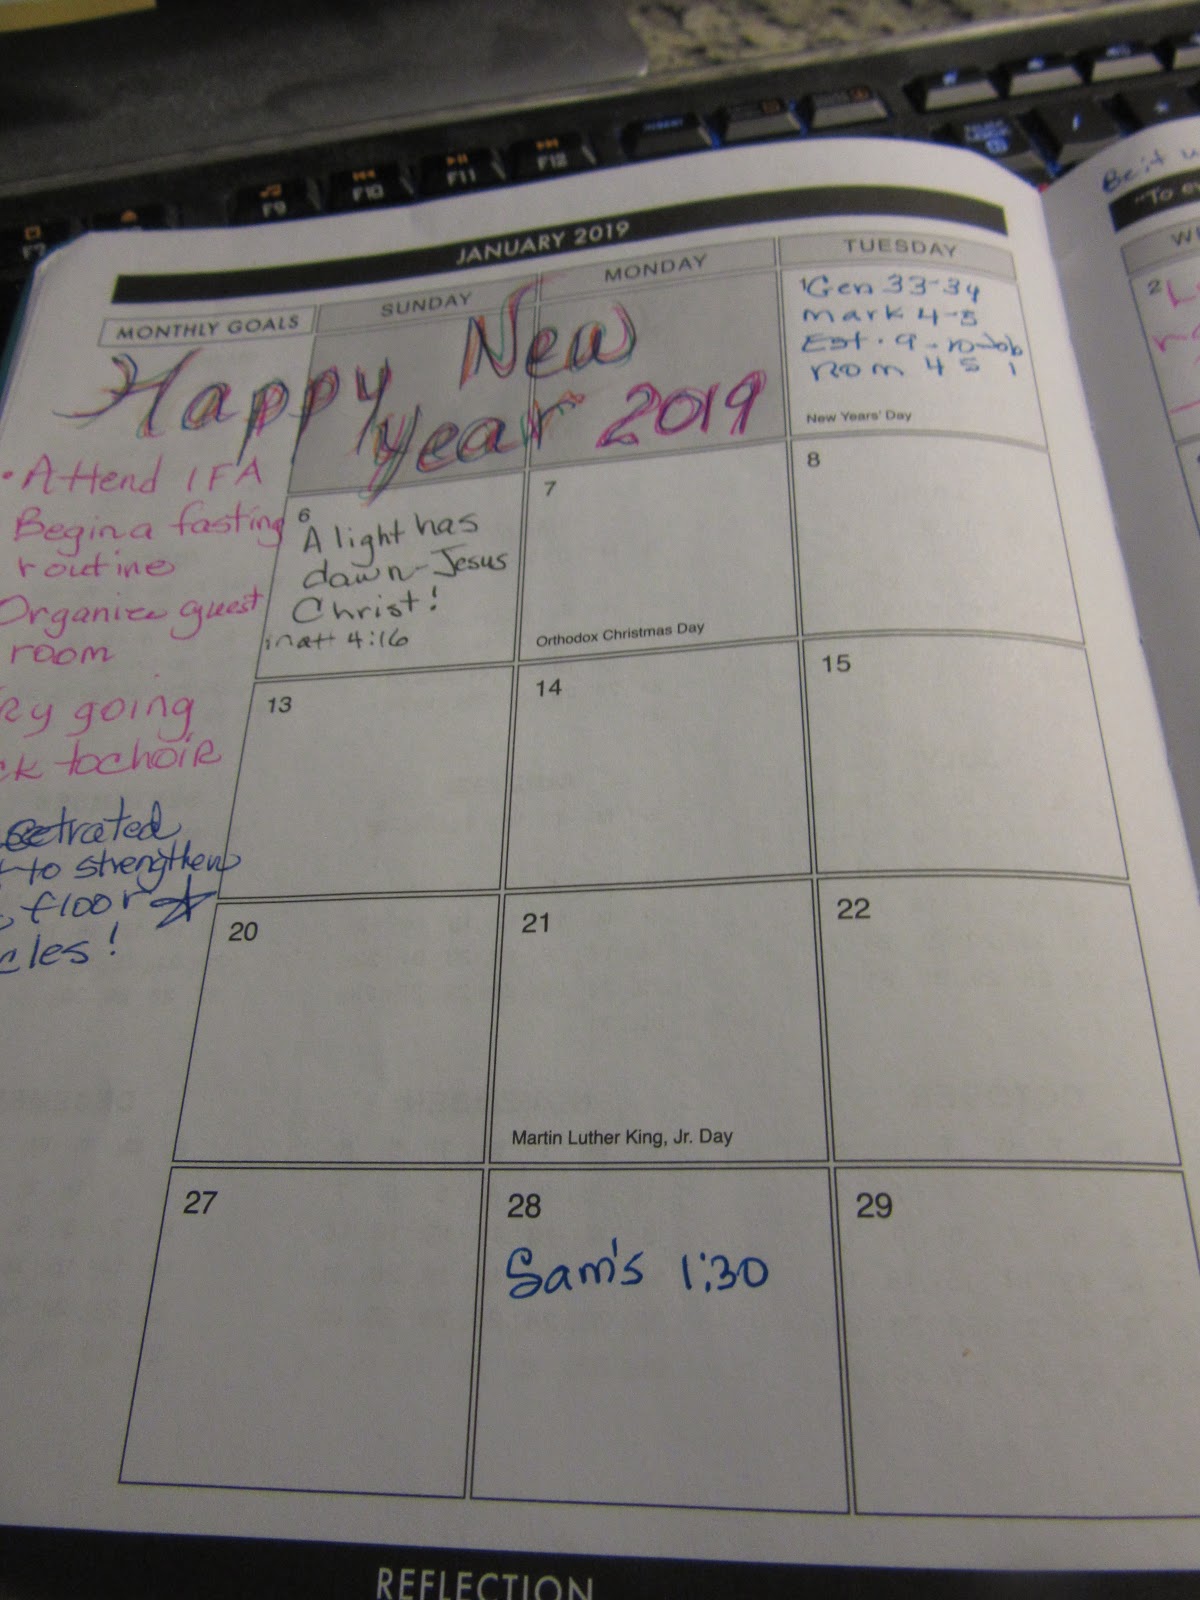 F7
F9
F10
F11
F12
INSERT
NUM
LOCK
/
*
JANUARY 2019
MONTHLY GOALS
SUNDAY
MONDAY
TUESDAY
Happy New
year 2019
• Attend IFA
Begin a fasting
routine
Organize guest
room
Ry going
ck to choir
etrated
to strengthen
floor
cles!
1 Gen 33-34
Mark 4-5
Est. 9-10 Job
Rom 4 5 1
New Years' Day
6
A light has
dawn-Jesus
Christ!
matt 4:16
7
Orthodox Christmas Day
8
13
14
15
20
21
Martin Luther King, Jr. Day
22
27
28
Sam's 1:30
29
REFLECTION
Be it
"To
WE
2